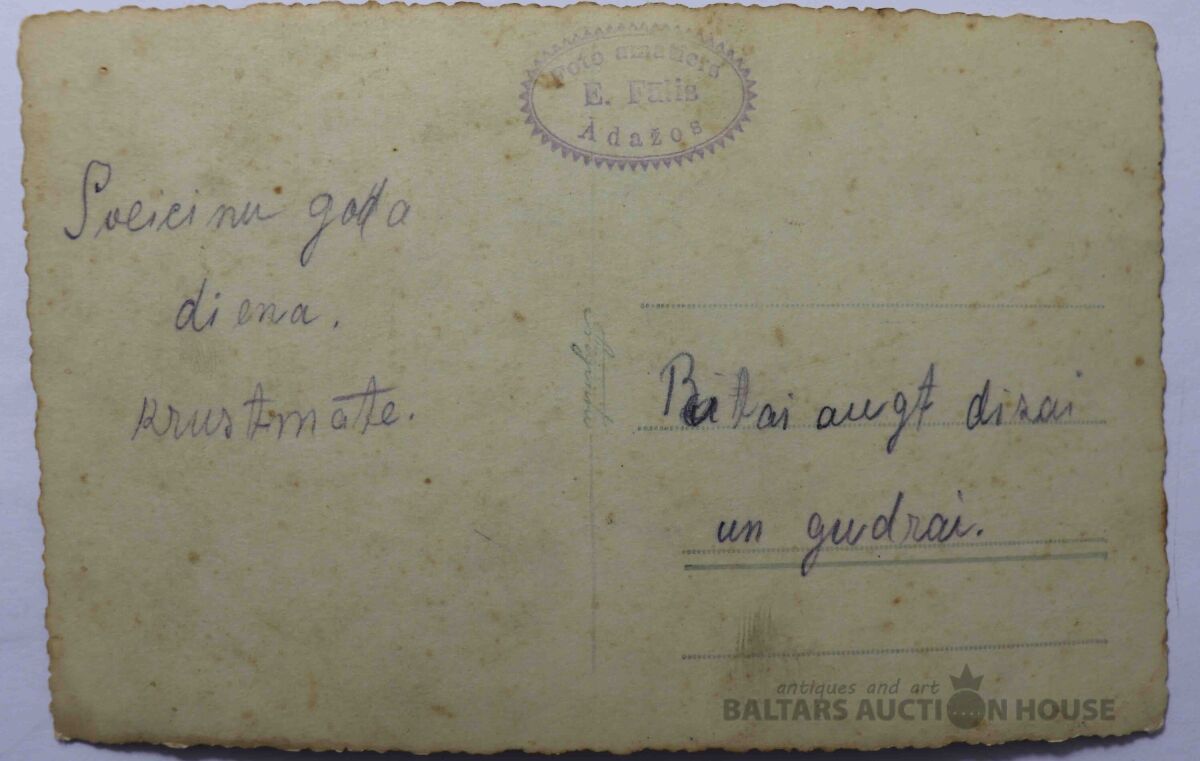 Foto amatieris
E. Fūlis
Ādažos
Sveicinu goda
diena.
Krustmāte.
Bitai augt dizai
un gudrai.
antiques and art
BALTARS AUCTION HOUSE